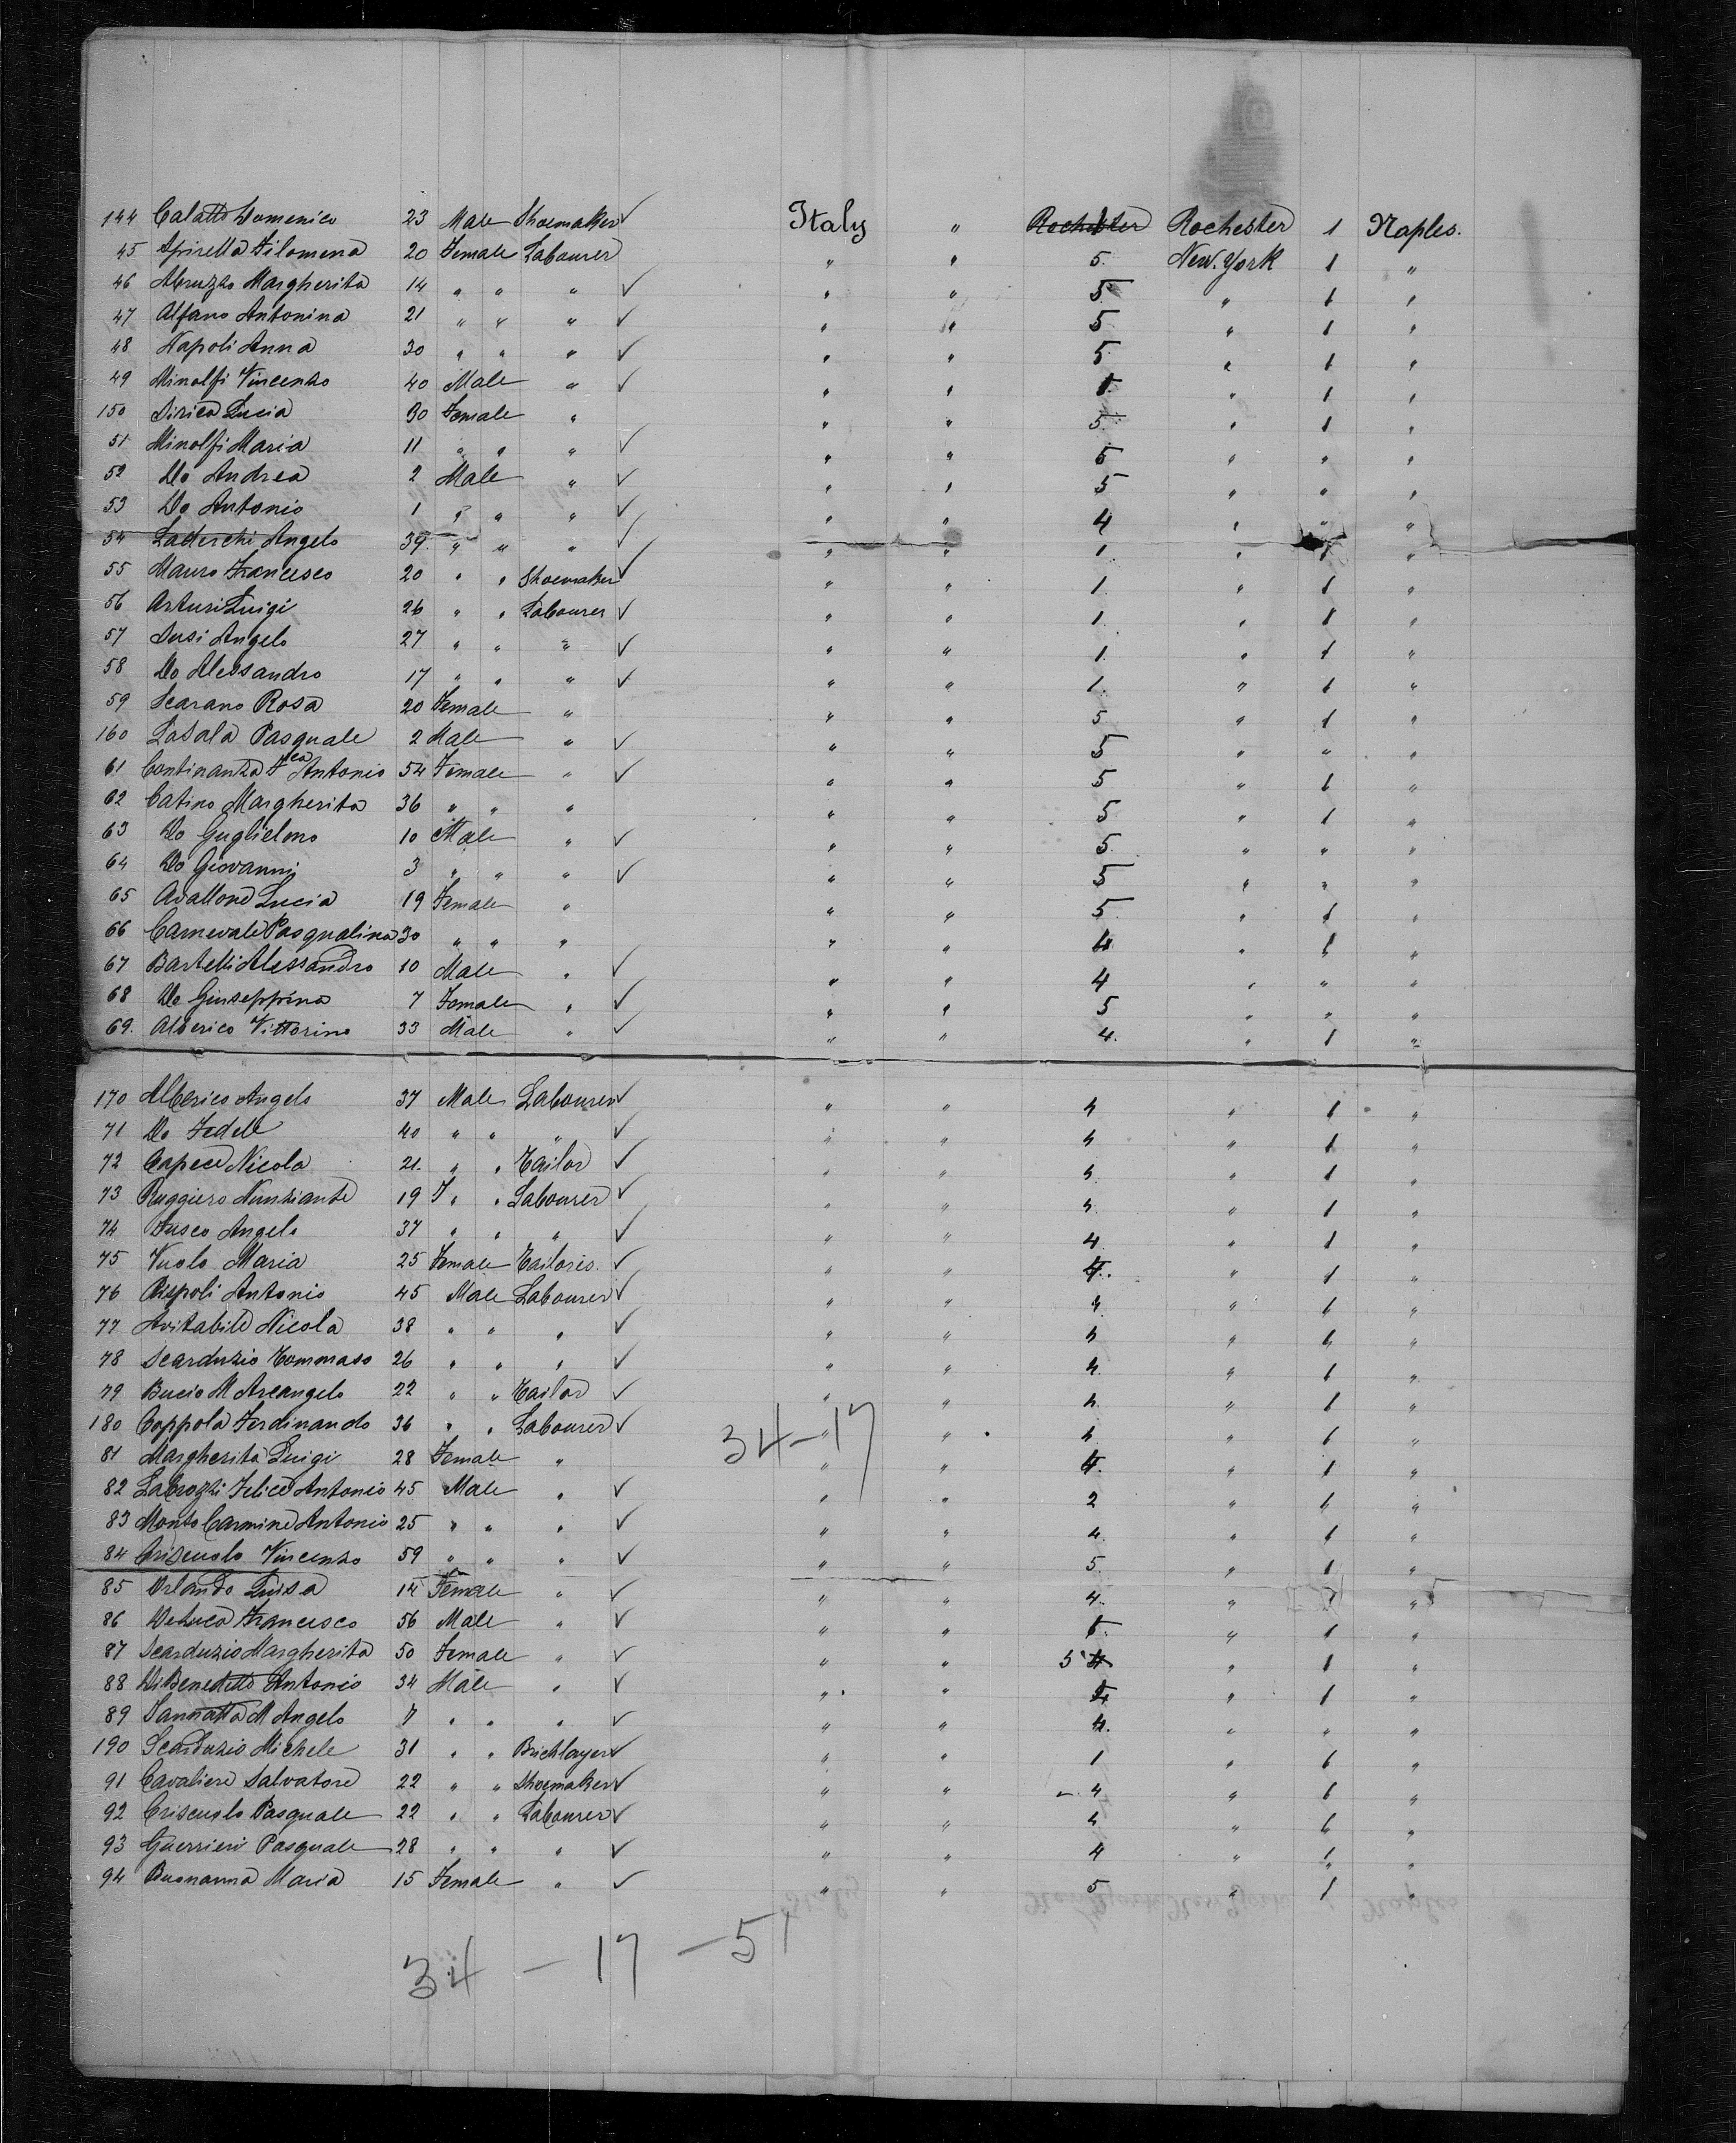 144 Calatto Domenico 23 Male Shoemaker ✓ Italy " Rochester Rochester 1 Naples.
45 Apirella Filomena 20 Female Labourer " " 5. New. York 1 "
46 Abruzzo Margherita 14 " " " ✓ " " 5 " 1 "
47 Alfano Antonina 21 " " " ✓ " " 5 " 1 "
48 Napoli Anna 30 " " " ✓ " " 5 " 1 "
49 Minolfi Vincenzo 40 Male " ✓ " " 1 " 1 "
150 Sirica Lucia 30 Female " " " 5 " 1 "
51 Minolfi Maria 11 " " " ✓ " " 5 " " "
52 Do Andrea 2 Male " ✓ " " 5 " " "
53 Do Antonio 1 " " " ✓ " " 4 " " "
54 Laderchi Angelo 39 " " " ✓ " " 1. " 1 "
55 Mauro Francesco 20 " " Shoemaker ✓ " " 1. " 1 "
56 Arturi Luigi 26 " " Labourer ✓ " " 1. " 1 "
57 Susi Angelo 27 " " " ✓ " " 1. " 1 "
58 Do Alessandro 17 " " " ✓ " " 1. " 1 "
59 Scarano Rosa 20 Female " " " 5 " 1 "
160 LaSala Pasquale 2 Male " ✓ " " 5 " " "
61 Continanza Fca Antonio 54 Female " ✓ " " 5 " 1 "
62 Catino Margherita 36 " " " " " 5 " 1 "
63 Do Guglielmo 10 Male " ✓ " " 5 " " "
64 Do Giovanni 3 " " " ✓ " " 5 " " "
65 Avallone Lucia 19 Female " " " 5 " 1 "
66 Carnevale Pasqualina 30 " " " " " 4 " 1 "
67 Bartelli Alessandro 10 Male " ✓ " " 4 " " "
68 Do Giuseppina 7 Female " ✓ " " 5 " " "
69. Alberico Vittorino 33 Male " ✓ " " 4. " 1 "
170 Alberico Angelo 37 Male Labourer ✓ " " 4 " 1 "
71 Do Fedele 40 " " " ✓ " " 4 " 1 "
72 Capece Nicola 21. " " Tailor ✓ " " 4. " 1 "
73 Ruggiero Nunziante 19 F " " Labourer ✓ " " 4. " 1 "
74 Fusco Angelo 37 " " " ✓ " " 4. " 1 "
75 Vuolo Maria 25 Female Tailoris. ✓ " " 4. " 1 "
76 Rispoli Antonio 45 Male Labourer ✓ " " 4 " 1 "
77 Avitabile Nicola 38 " " " ✓ " " 4 " 1 "
78 Scarduzio Tommaso 26 " " " ✓ " " 4. " 1 "
79 Bucio M Arcangelo 22 " " Tailor ✓ " " 4. " 1 "
180 Coppola Ferdinando 36 " " Labourer ✓ " " 4 " 1 "
34-17
81 Margherita Luigi 28 Female " " " 4. " 1 "
82 Labrozzi Felice Antonio 45 Male " ✓ " " 2 " 1 "
83 Monto Carmine Antonio 25 " " " ✓ " " 4. " 1 "
84 Criscuolo Vincenzo 59 " " " ✓ " " 5. " 1 "
85 Orlando Luisa 14 Female " ✓ " " 4. " 1 "
86 DeLuca Francesco 56 Male " ✓ " " " 1 "
87 Scarduzio Margherita 50 Female " ✓ " " 5 4 " 1 "
88 DiBenedetto Antonio 34 Male " ✓ " " " 1 "
89 Iannatta M Angelo 7 " " " ✓ " " 4. " " "
190 Scarduzio Michele 31 " " Bricklayer ✓ " " 1 " 1 "
91 Cavaliere Salvatore 22 " " Shoemaker ✓ " " 4 " 1 "
92 Criscuolo Pasquale 22 " " Labourer ✓ " " 4 " 1 "
93 Guerrieri Pasquale 28 " " " ✓ " " 4 " 1 "
94 Buonanna Maria 15 Female " ✓ " " 5 " 1 "
34 - 17 - 51